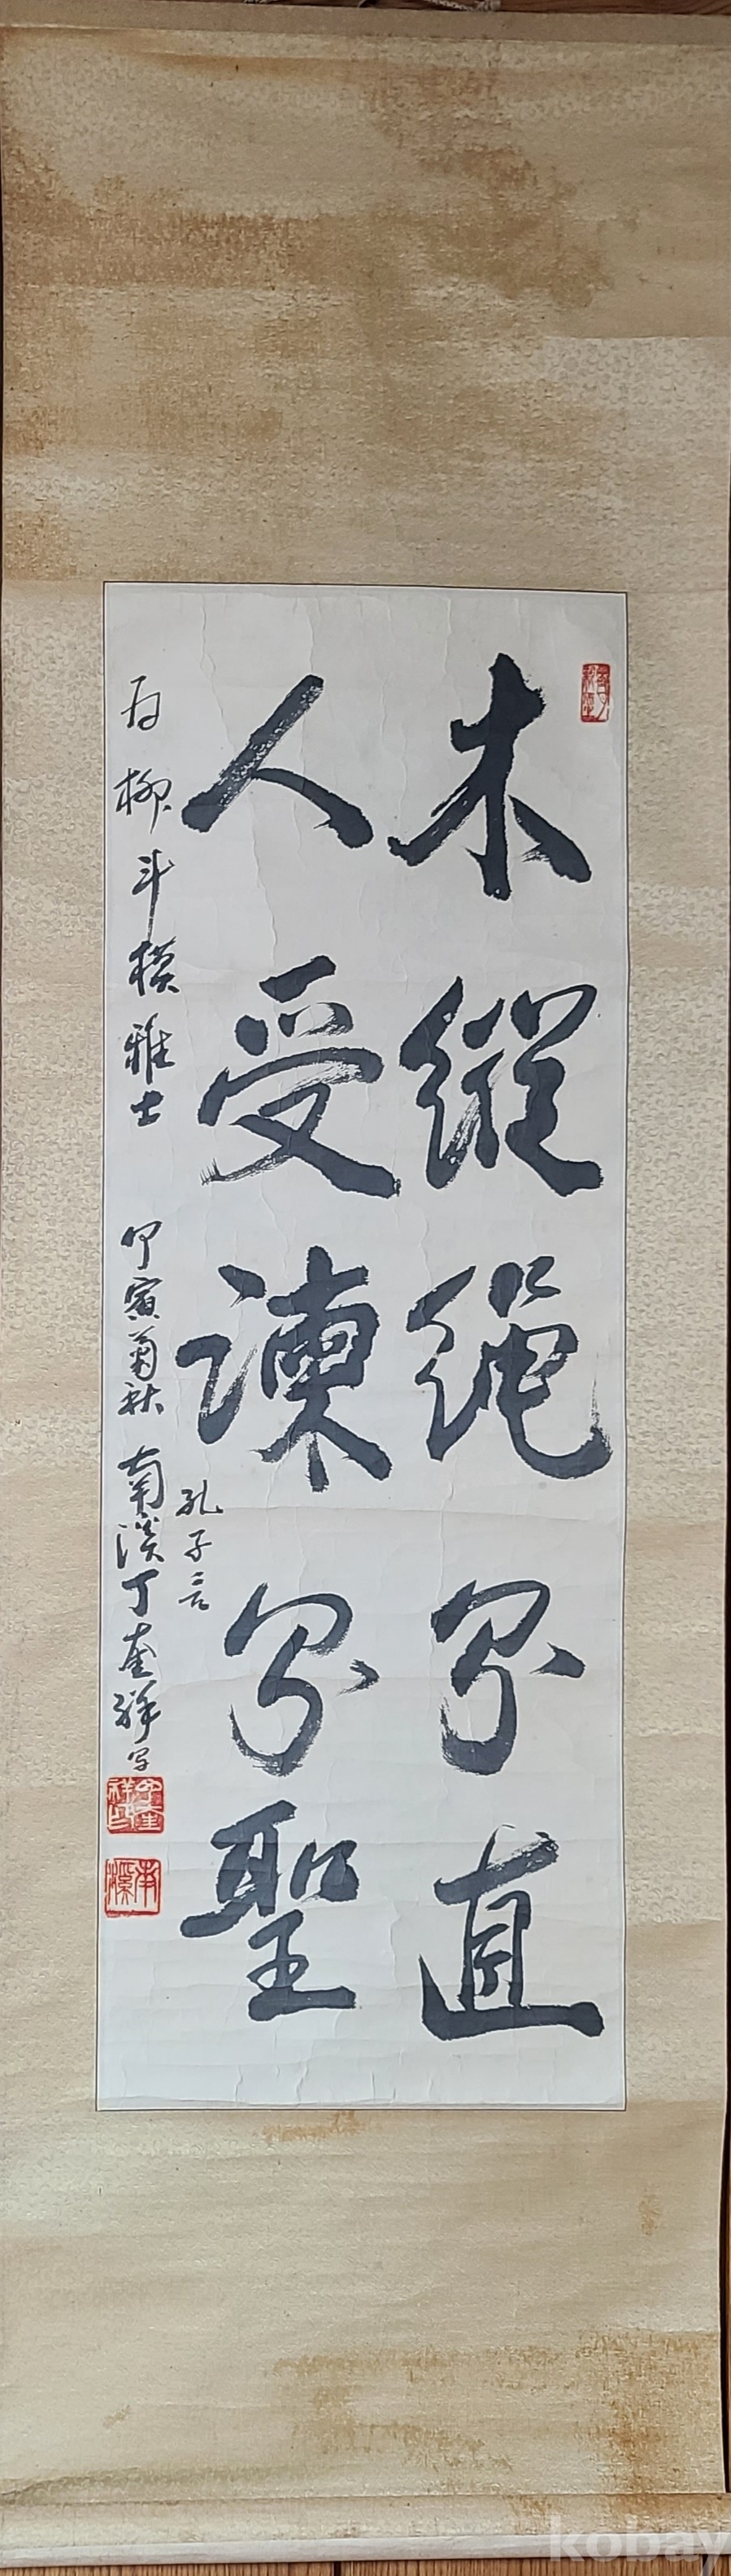 木縱繩則直
人受諫則聖
孔子言
為柳斗模雅士 甲寅菊秋 南溪丁奎祥写
kobay